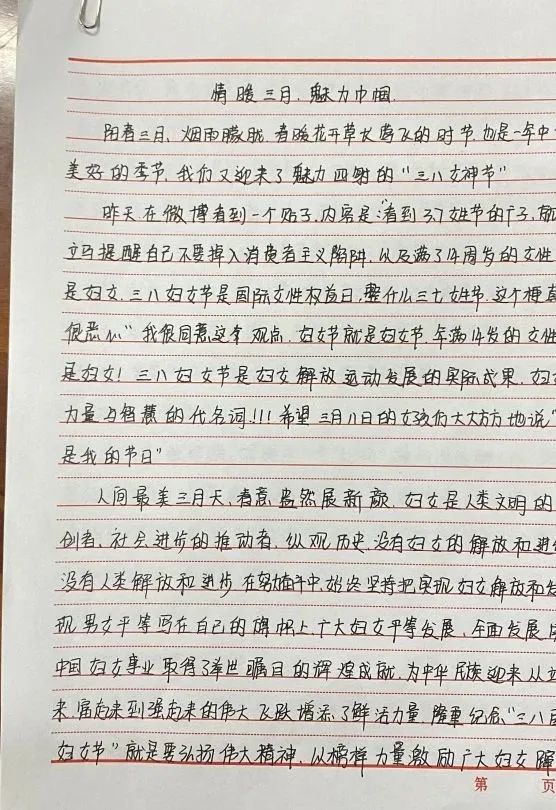 情暖三月.魅力巾帼.
阳春三月、烟雨朦胧.春暖花开草长莺飞的时节.也是一年中
美好的季节.我们又迎来了魅力四射的“三八女神节”
昨天在微博看到一个贴子.内容是:“看到37女姓节的广子.就
立马提醒自己不要掉入消费者主义陷阱.以及满了14周岁的女性
是妇女.三八妇女节是国际女性权益日.整什么三七女姓节.这个梗真
很恶心”我很同意这个观点.妇女节就是妇女节.年满14岁的女性
是妇女!三八妇女节是妇女解放运动发展的实际成果.妇女
力量与智慧的代名词!!!希望三月八日的女孩们大大方方地说“
是我的节日”
人间最美三月天、春意盎然展新颜.妇女是人类文明的
创者、社会进步的推动者.纵观历史.没有妇女的解放和进
没有人类解放和进步.在奋斗中.始终坚持把实现妇女解放和发
现男女平等写在自己的旗帜上.广大妇女平等发展、全面发展
中国妇女事业取得了举世瞩目的辉煌成就.为中华民族迎来从立
来.富起来到强起来的伟大飞跃增添了鲜活力量.隆重纪念“三八
妇女节”就是要弘扬伟大精神、以榜样力量激励广大妇女
第 页